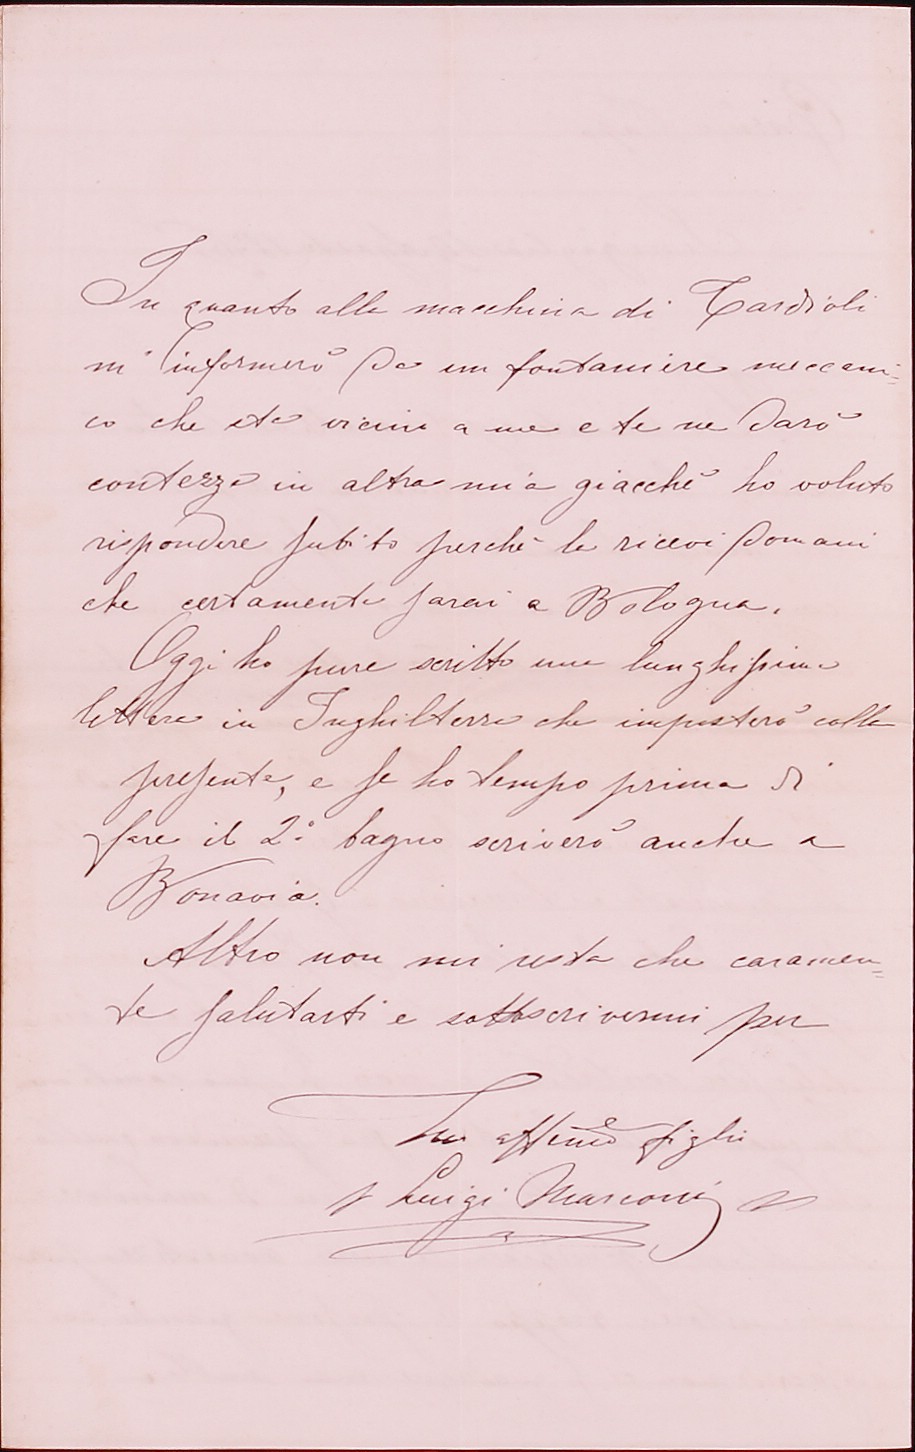 In quanto alla macchina di Tardioli
m'informerò da un fontaniere meccani=
co che sta vicino a me e te ne darò
contezza in altra mia giacchè ho voluto
rispondere subito perchè la ricevi domani
che certamente sarai a Bologna.
Oggi ho pure scritto una lunghissima
lettera in Inghilterra che imposterò colla
presente, e se ho tempo prima di
fare il 2º bagno scriverò anche a
Bonavia.
Altro non mi resta che caramen=
te salutarti e sottoscrivermi per
Tuo affemo figlio
Luigi Marconi